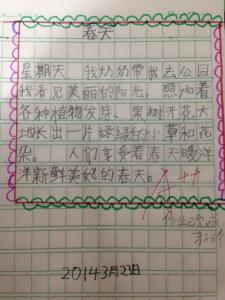 春天
星期天 我奶奶带我去公园
我看见美丽的阳光，照yào着
各种植物发芽、果树开花、大
地长出一片绿绿的小草和花
朵。 人们享受着春天暖洋
洋新鲜美好的春天。
作业已完成
2014 3月23日